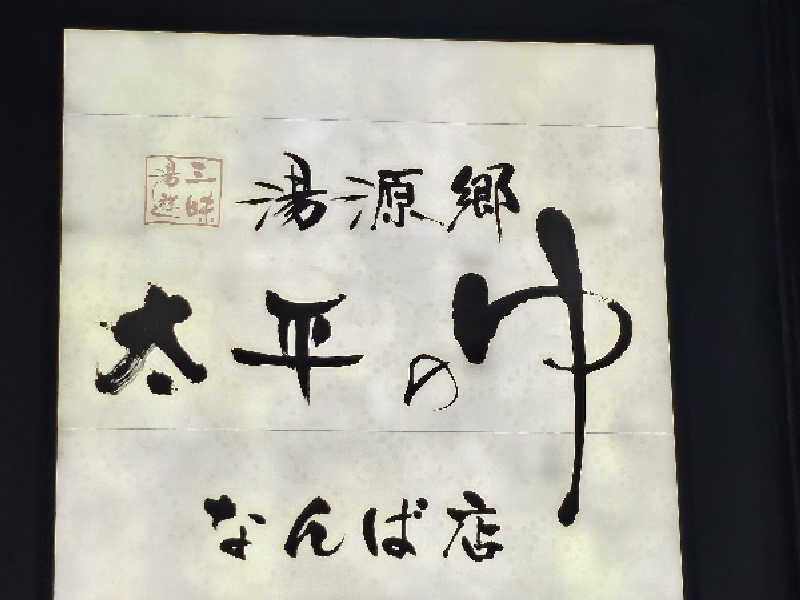 湯源郷
太平のゆ
なんば店
三昧
湯遊